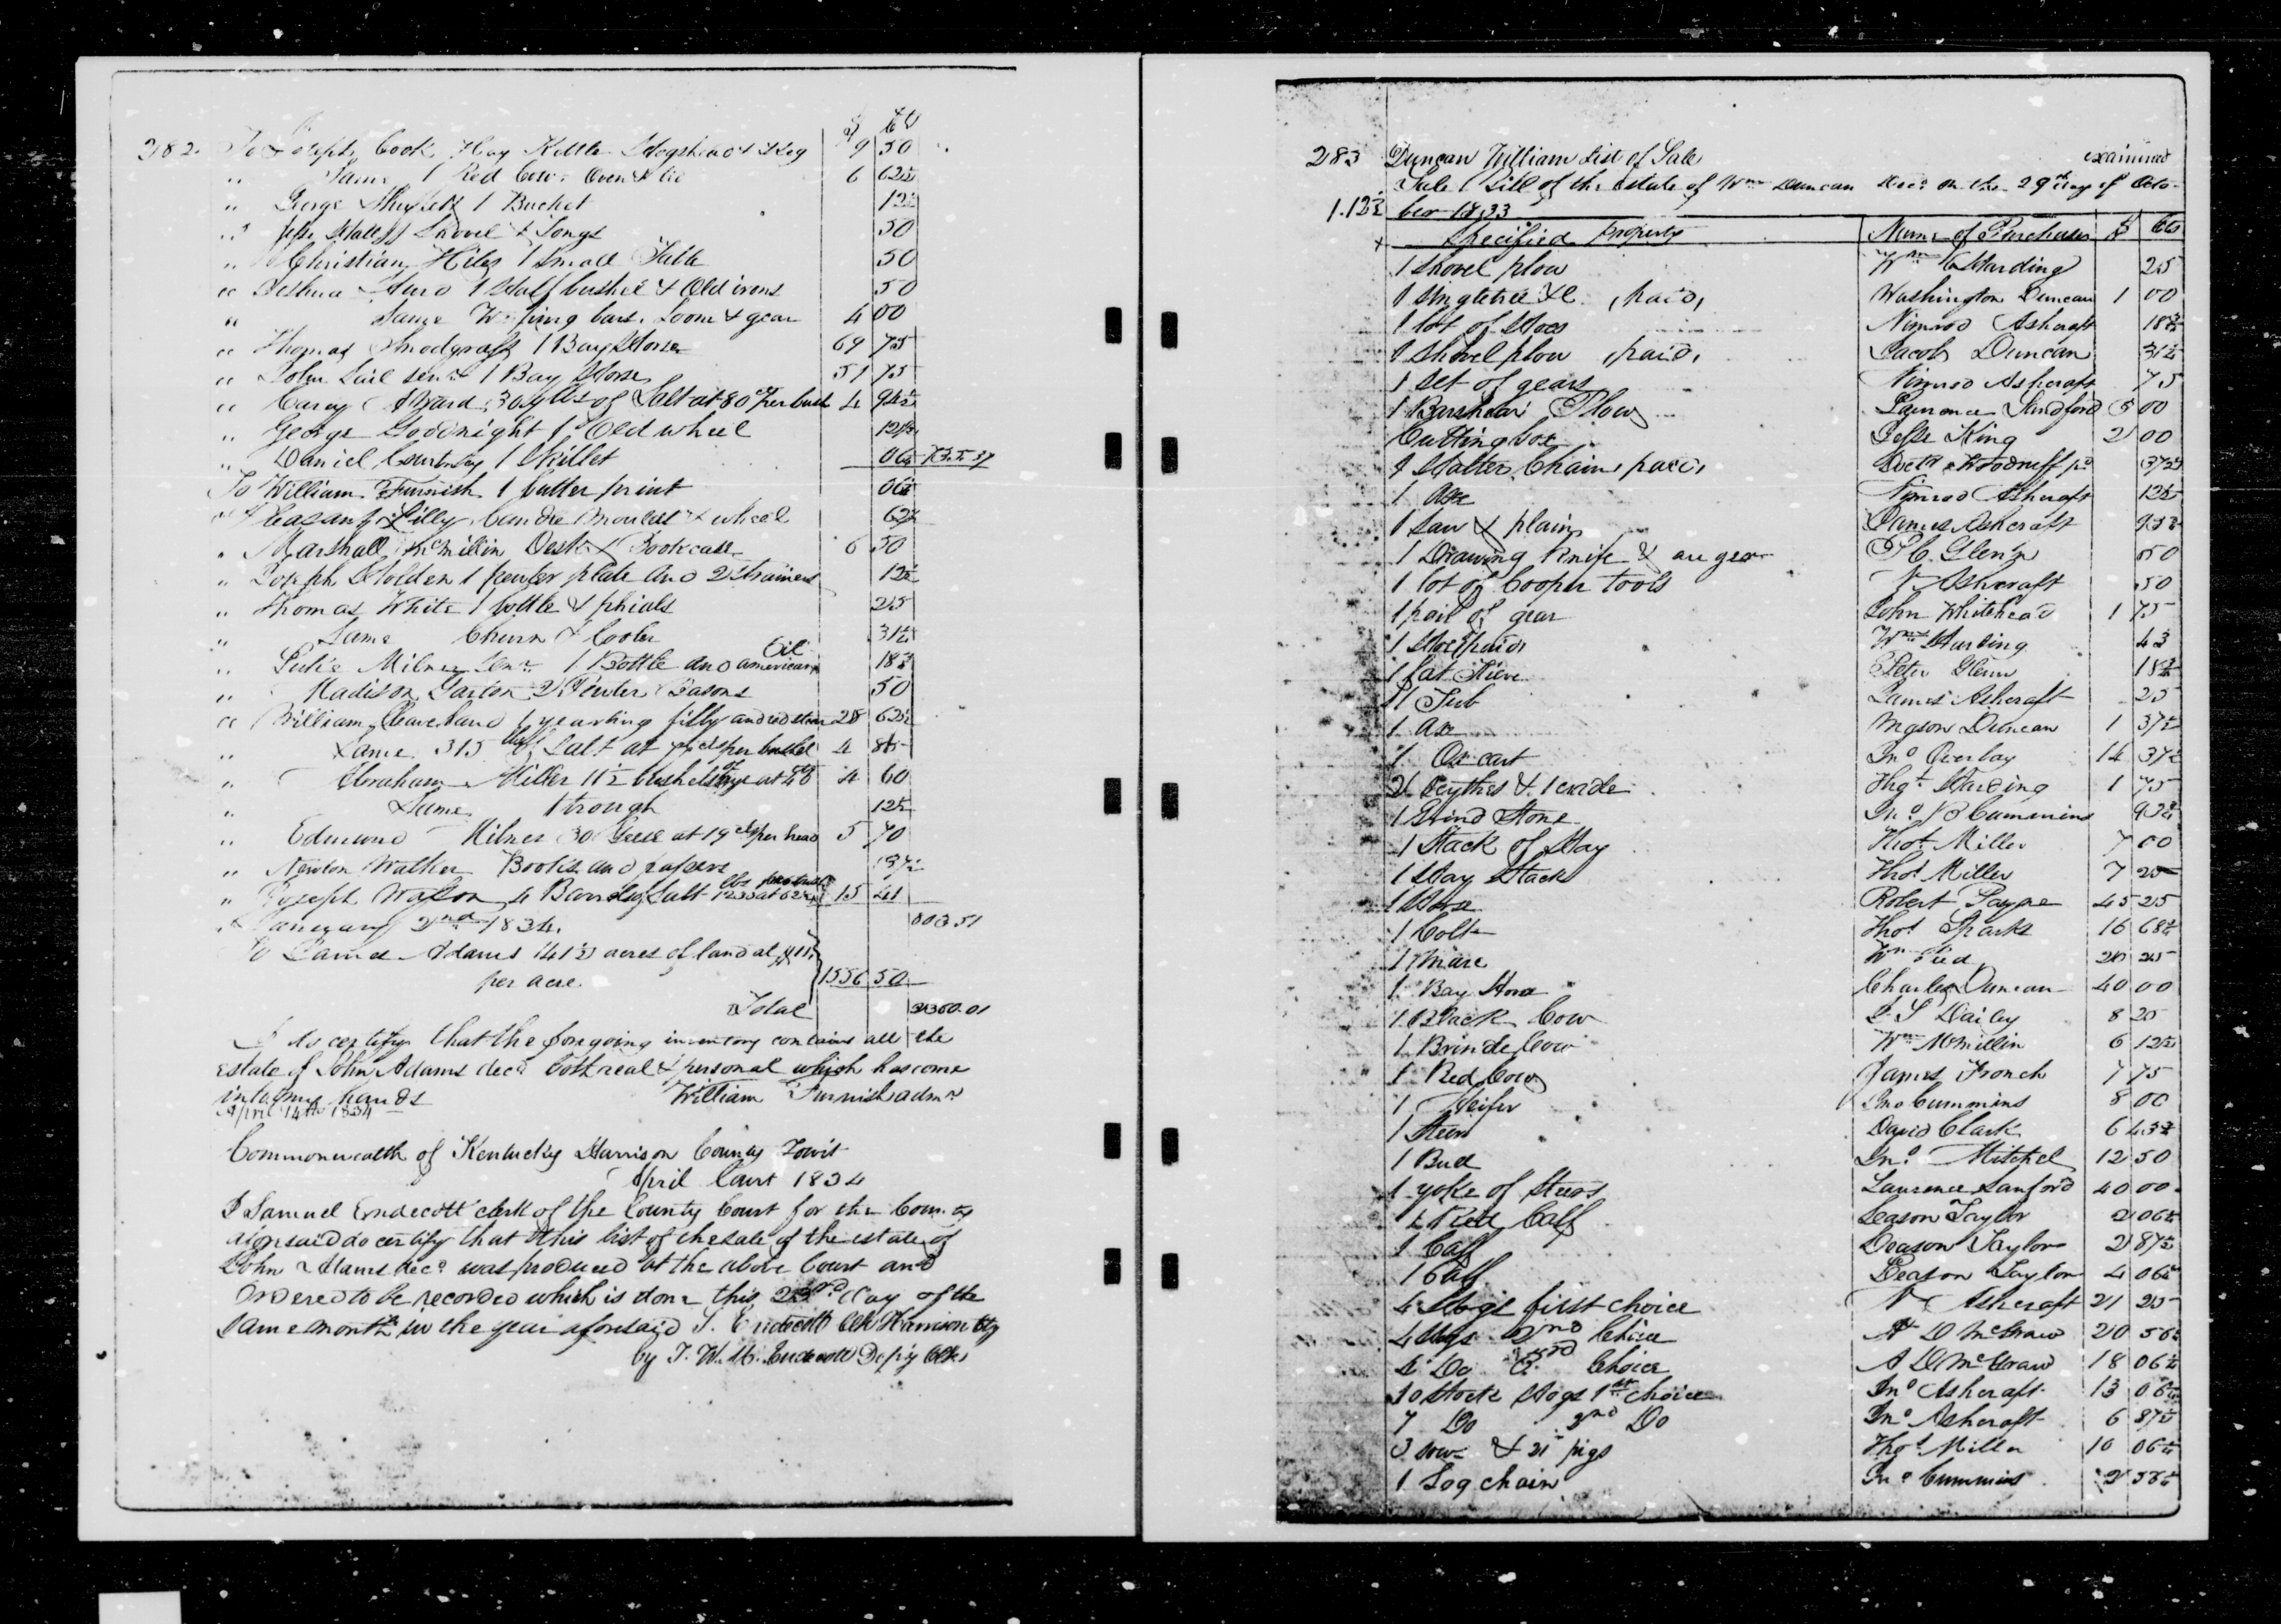 $ Cts
282. To Joseph Cook Hay Kettle Hogshead & Keg 9 50
" Same 1 Red Cow Oven & lid 6 62½
" George 1 Bucket 12½
" Jesse Shovel & Tongs 50
" Christian Hiles 1 Small Table 50
" Joshua 1 Half bushel & Old irons 50
" Same Warping bars, Loom & gear 4 00
" Thomas Snodgrass 1 Bay Horse 69 75
" John Lail senr 1 Bay Horse 51 75
" Carey of Salt at 80 cts per bush 4 94½
" George Goodnight 1 Old wheel 12½
" Daniel Courtney 1 Skillet 06¼
To William Furnish 1 butter print 06¼
" Pleasant Lilly Candle Moulds & wheel 62½
" Marshall McMillin Desk & Bookcase 6 50
" Joseph Holden 1 pewter plate and 2 strainers 12½
" Thomas White 1 bottle & phials 25
" Same Churn & Cooler 31¼
" Milner Senr 1 Bottle and american Oil 18¾
" Madison Garton 2 Pewter Basons 50
" William Cleaveland 1 yearling filly and red steer 28 62½
" Same 315 lbs of Salt at per bushel 4
" Abraham Miller 11½ bushels of rye at 40 cts 4 60
" Same 1 trough 12½
" Edmund Milner 30 Geese at 19 cts per head 5 70
" Newton Walker Books and papers 37½
" Joseph Watson 4 Barrels of Salt 15 41
" January 2nd 1834. 803.51
To James Adams 141½ acres of land at $11
per acre 1556 50
Total 2360.01
I do certify that the foregoing inventory contains all the
estate of John Adams decd both real & personal which has come
into my hands William Furnish admr
April 14th 1834
Commonwealth of Kentucky Harrison County Towit
April Court 1834
I Samuel Endecott clerk of the County Court for the County
aforesaid do certify that this list of the sale of the estate of
John Adams decd was produced at the above Court and
Ordered to be recorded which is done this 23rd day of the
same month in the year aforesaid S. Endecott Clk Harrison Cty
by J. W. H. Endecott Depty Clk
283 Duncan William List of Sale examined
Sale Bill of the estate of Wm Duncan Decd on the 29th day of Octo-
1.12½ ber 1833
Specified Property Name of Purchaser $ Cts
1 Shovel plow Wm Harding 25
1 singletree &c. (paid) Washington Duncan 1 00
1 lot of Hoes Nimrod Ashcraft 18¾
1 Shovel plow (paid) Jacob Duncan 31¼
1 Set of gears Nimrod Ashcraft 75
1 Barshear Plow Lawrence Sandford 5 00
Cutting box Jesse King 2 00
1 Halter Chain (paid) Woodruff pd 37½
1 Axe Nimrod Ashcraft 12½
1 Saw & plain James Ashcraft
1 Drawing Knife & auger P C. Glenn 50
1 lot of Cooper tools N Ashcraft 50
1 pair of gear John Whitehead 1 75
1 Hoe (paid) Wm Harding 43
1 fat Sieve Peter Glenn 18¾
1 Tub James Ashcraft 25
1 Axe Duncan 1 37½
1 Ox cart Jno Overbay 14 37½
2 Scythes & 1 cradle Thos Harding 1 75
1 Grind Stone Jno B Cummins 93¾
1 Stack of Hay Thos Miller 7 00
1 Hay Stack Thos Miller 7 25
1 Horse Robert Payne 45 25
1 Colt Thos Sparks 16 68¾
1 Mare Wm 20 25
1 Bay Horse Charles Duncan 40 00
1 Black Cow Dailey 8 25
1 Brindle Cow Wm McMillin 6 12½
1 Red Cow James French 7 75
1 Heifer Jno Cummins 8 00
1 Steer David Clark 6 43¾
1 Bull Jno Mitchel 12 50
1 yoke of Steers Lawrence Sanford 40 00
1 Red Calf Leason Taylor 2 06¼
1 Calf Leason Taylor 2 87½
1 Calf Leason Taylor 4 06¼
4 Hogs first choice N Ashcraft 21 25
4 Hogs 2nd Choice A D McGraw 20 56¼
4 Do 3rd Choice A D McGraw 18 06¼
10 Stock Hogs 1st choice Jno Ashcraft 13 06¼
7 Do 2nd Do Jno Ashcraft 6 87½
3 sows & 21 pigs Thos Miller 10 06¼
1 Log chain Jno Cummins 2 56¼